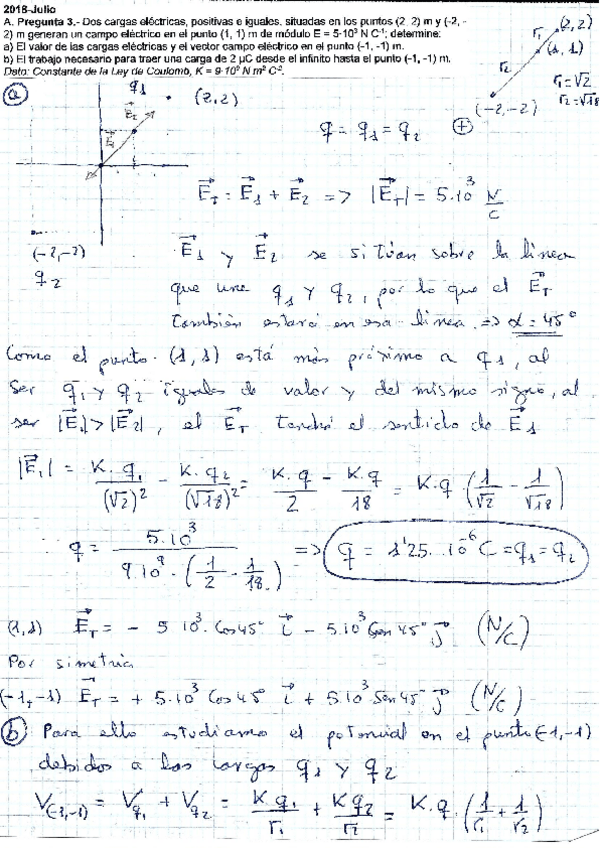 2018-Julio
A. Pregunta 3.- Dos cargas eléctricas, positivas e iguales, situadas en los puntos (2, 2) m y (-2, -
2) m generan un campo eléctrico en el punto (1, 1) m de módulo E = 5·10³ N C⁻¹; determine:
a) El valor de las cargas eléctricas y el vector campo eléctrico en el punto (-1, -1) m.
b) El trabajo necesario para traer una carga de 2 μC desde el infinito hasta el punto (-1, -1) m.
Dato: Constante de la Ley de Coulomb, K = 9·10⁹ N m² C⁻².
(2,2)
r₁
(1,1)
r₂
r₁=√2
r₂=√18
(-2,-2)
a
q₁
(2,2)
E₂
E₁
(-2,-2)
q₂
q = q₁ = q₂ (+)
E_T = E₁ + E₂ => |E_T| = 5·10³ N/C
E₁ y E₂ se sitúan sobre la línea
que une q₁ y q₂, por lo que el E_T
también estará en esa línea => α = 45°
Como el punto (1,1) está más próximo a q₁, al
ser q₁ y q₂ iguales de valor y del mismo signo, al
ser |E₁|>|E₂|, el E_T tendrá el sentido de E₁
|E₁| = K·q₁/(√2)² - K·q₂/(√18)² = K·q/2 - K·q/18 = K·q (1/√2 - 1/√18)
q = 5·10³/(9·10⁹·(1/2 - 1/18)) => q = 1'25·10⁻⁶ C = q₁ = q₂
(1,1) E_T = - 5·10³·Cos45° i - 5·10³ Sen45° j (N/C)
Por simetría
(-1,-1) E_T = + 5·10³ Cos45° i + 5·10³ Sen45° j (N/C)
b Para ello estudiamos el potencial en el punto (-1,-1)
debidos a las cargas q₁ y q₂
V(-1,-1) = V_q₁ + V_q₂ = K·q₁/r₁ + K·q₂/r₂ = K·q·(1/r₁ + 1/r₂)